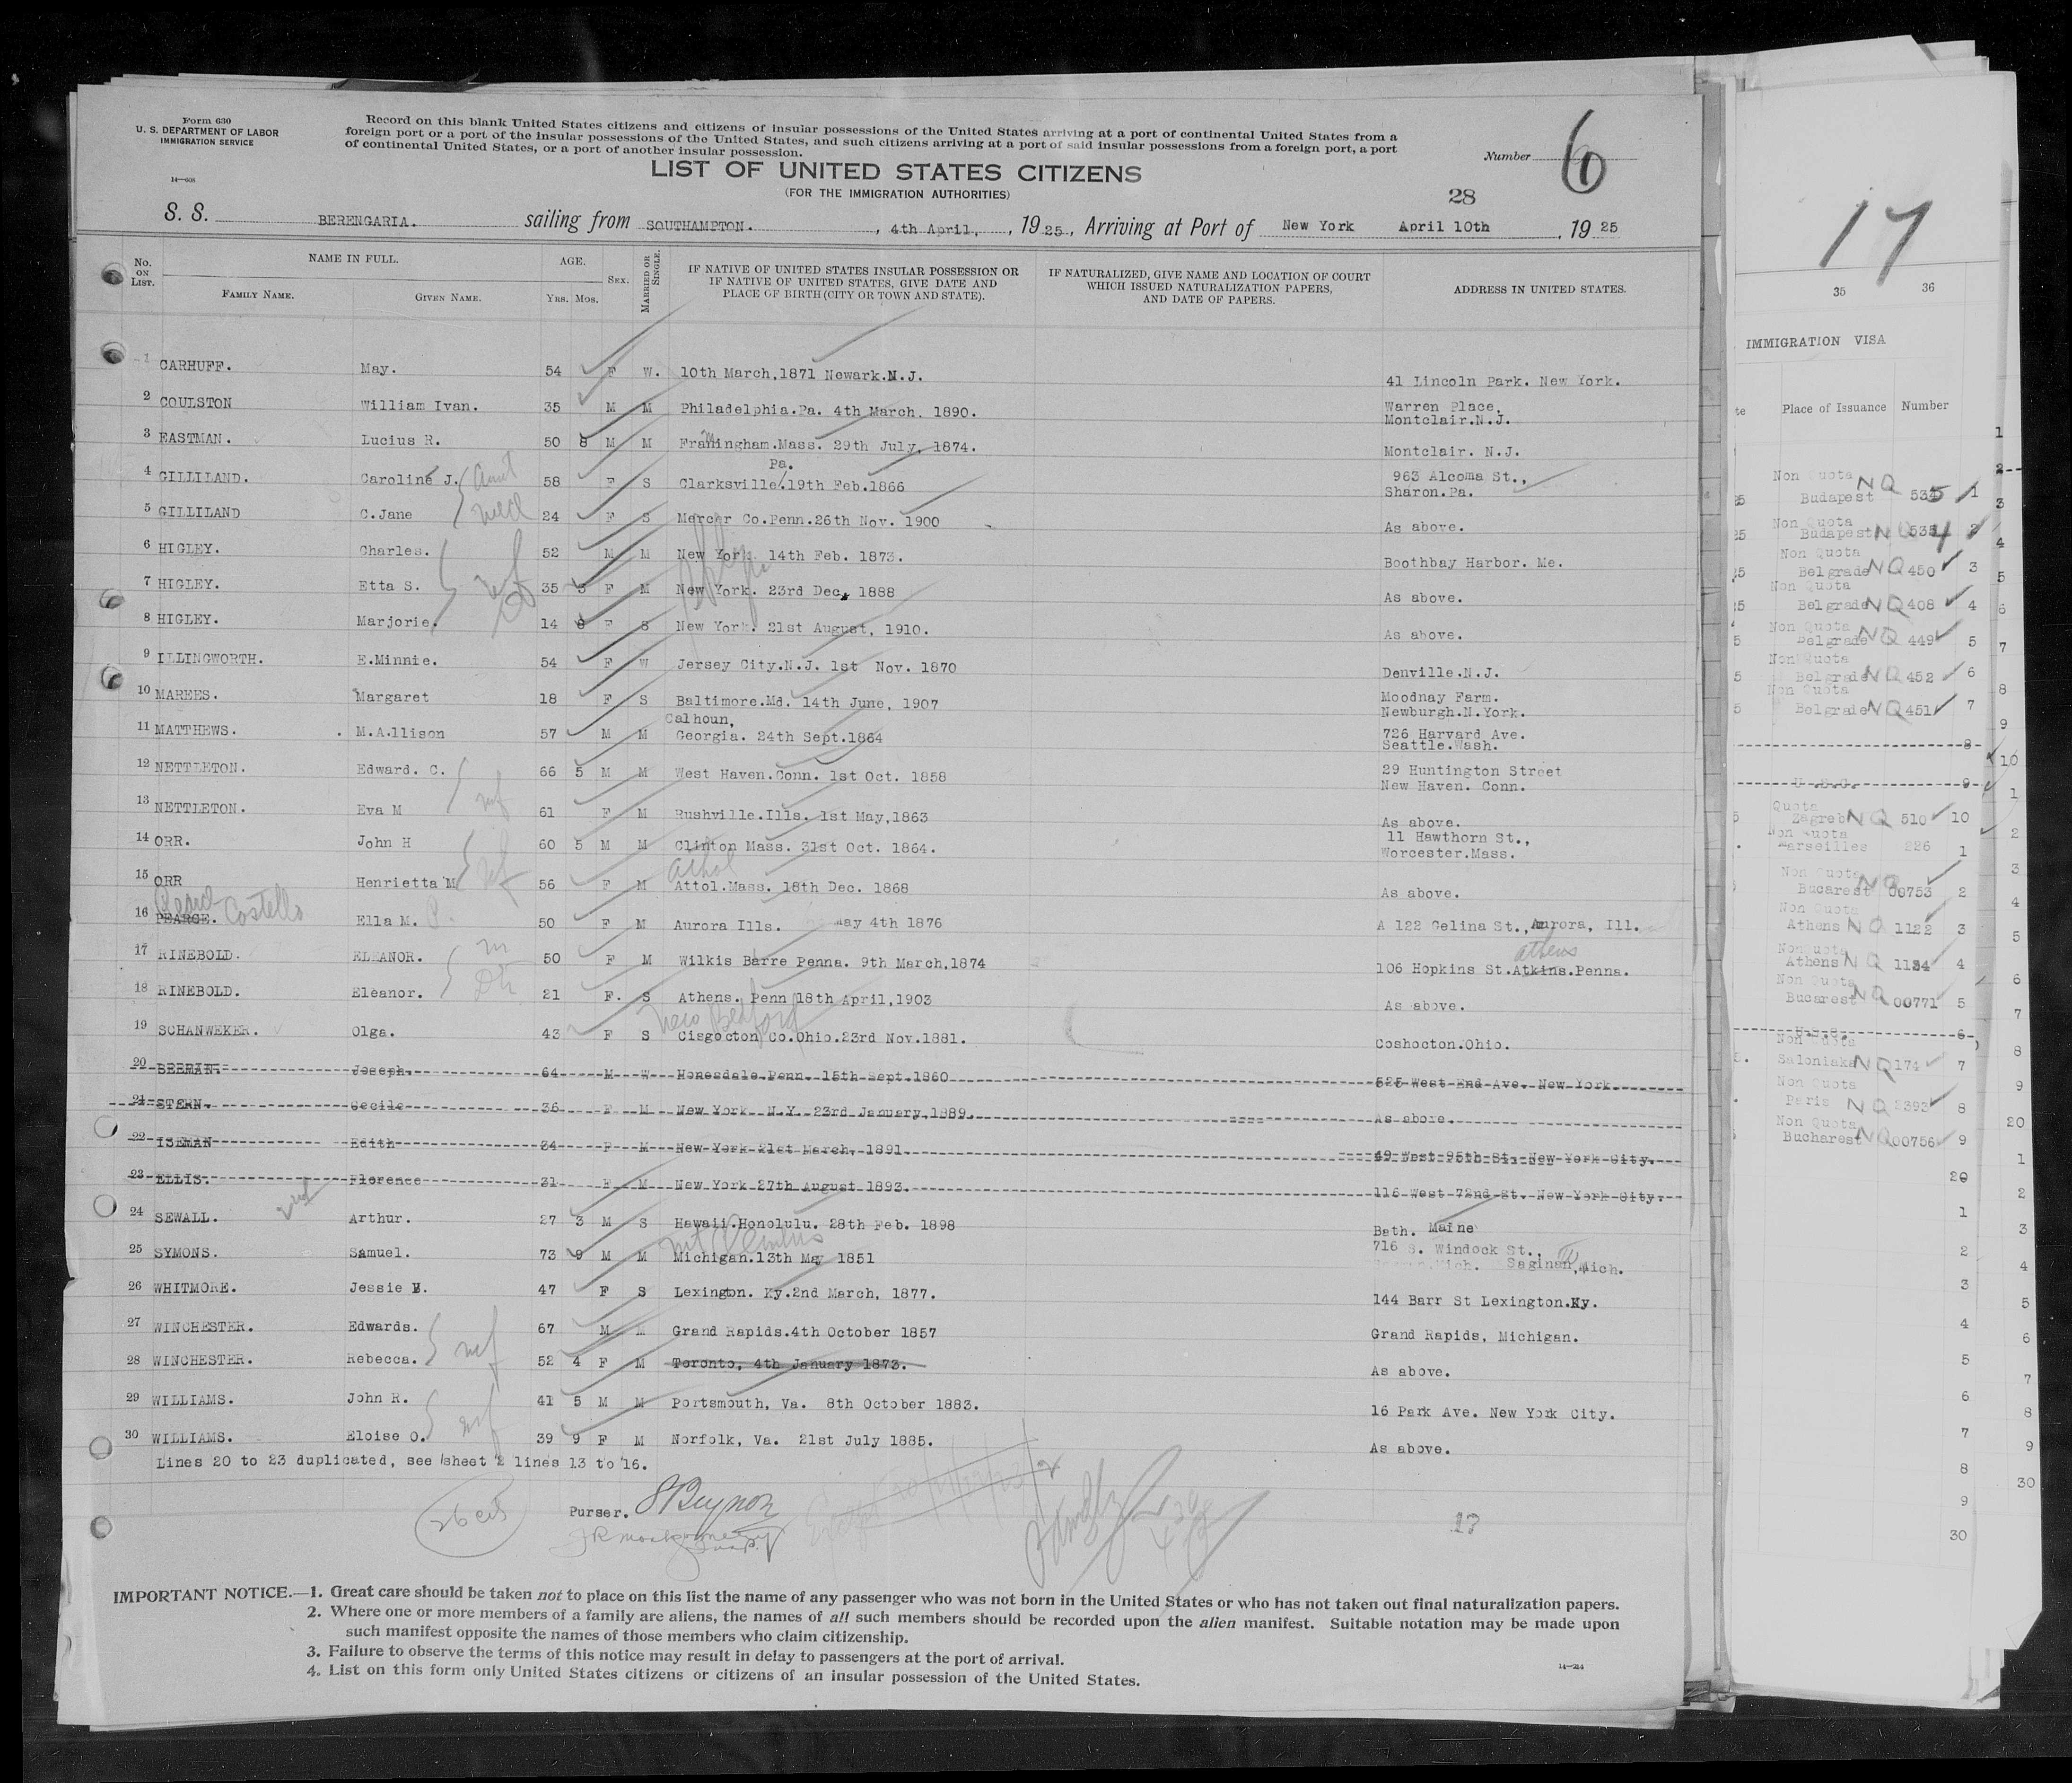 Form 630
U. S. DEPARTMENT OF LABOR
IMMIGRATION SERVICE
14—608
Record on this blank United States citizens and citizens of insular possessions of the United States arriving at a port of continental United States from a
foreign port or a port of the insular possessions of the United States, and such citizens arriving at a port of said insular possessions from a foreign port, a port
of continental United States, or a port of another insular possession.
LIST OF UNITED STATES CITIZENS
(FOR THE IMMIGRATION AUTHORITIES)
Number 6
28
S. S. BERENGARIA. sailing from SOUTHAMPTON. , 4th April, , 1925, Arriving at Port of New York April 10th , 1925
No. ON LIST. NAME IN FULL. FAMILY NAME. GIVEN NAME. AGE. YRS. MOS. SEX. MARRIED OR SINGLE. IF NATIVE OF UNITED STATES INSULAR POSSESSION OR IF NATIVE OF UNITED STATES, GIVE DATE AND PLACE OF BIRTH (CITY OR TOWN AND STATE). IF NATURALIZED, GIVE NAME AND LOCATION OF COURT WHICH ISSUED NATURALIZATION PAPERS, AND DATE OF PAPERS. ADDRESS IN UNITED STATES.
1 CARHUFF. May. 54 F W. 10th March,1871 Newark.N.J. 41 Lincoln Park. New York.
2 COULSTON William Ivan. 35 M M Philadelphia.Pa. 4th March, 1890. Warren Place, Montclair.N.J.
3 EASTMAN. Lucius R. 50 8 M M Framingham.Mass. 29th July, 1874. Montclair. N.J.
4 GILLILAND. Caroline J. Aunt 58 F S Clarksville Pa. 19th Feb.1866 963 Alcoma St., Sharon.Pa.
5 GILLILAND C.Jane 24 F S Mercer Co.Penn.26th Nov. 1900 As above.
6 HIGLEY. Charles. 52 M M New York 14th Feb. 1873. Boothbay Harbor. Me.
7 HIGLEY. Etta S. 35 3 F M New York. 23rd Dec. 1888 As above.
8 HIGLEY. Marjorie. 14 8 F S New York. 21st August, 1910. As above.
9 ILLINGWORTH. E.Minnie. 54 F W Jersey City.N.J. 1st Nov. 1870 Denville.N.J.
10 MAREES. Margaret 18 F S Baltimore.Md. 14th June, 1907 Moodnay Farm. Newburgh.N.York.
11 MATTHEWS. M.A.llison 57 M M Calhoun, Georgia. 24th Sept.1864 726 Harvard Ave. Seattle.Wash.
12 NETTLETON. Edward. C. 66 5 M M West Haven.Conn. 1st Oct. 1858 29 Huntington Street New Haven. Conn.
13 NETTLETON. Eva M 61 F M Rushville.Ills. 1st May,1863 As above.
14 ORR. John H 60 5 M M Clinton Mass. 31st Oct. 1864. 11 Hawthorn St., Worcester.Mass.
15 ORR Henrietta M 56 F M Athol Attol.Mass. 18th Dec. 1868 As above.
16 PEARCE. Costello Ella M. P. 50 F M Aurora Ills. May 4th 1876 A 122 Celina St., Aurora, Ill.
17 RINEBOLD. ELEANOR. m 50 F M Wilkis Barre Penna. 9th March,1874 106 Hopkins St.Atkins.Penna. athens
18 RINEBOLD. Eleanor. 21 F. S Athens. Penn 18th April,1903 As above.
19 SCHANWEKER. Olga. 43 F S New Bedford Cisgocton Co.Ohio.23rd Nov.1881. Coshocton.Ohio.
20 Joseph. 64 M W Honesdale.Penn. 15th Sept.1860 525 West End Ave. New York.
21 STERN. Cecile 36 F M New York N.Y. 23rd January,1889. As above.
22 ISEMAN Edith 34 F M New York 21st March, 1891. 49 West 95th St. New York City.
23 ELLIS. Florence 31 F M New York 27th August 1893. 116 West 72nd St. New York City.
24 SEWALL. Arthur. 27 3 M S Hawaii.Honolulu. 28th Feb. 1898 Bath. Maine
25 SYMONS. Samuel. 73 9 M M Michigan.13th May 1851 716 S. Windock St., Saginaw, Mich.
26 WHITMORE. Jessie 47 F S Lexington. Ky.2nd March, 1877. 144 Barr St Lexington.Ky.
27 WINCHESTER. Edwards. 67 M M Grand Rapids.4th October 1857 Grand Rapids, Michigan.
28 WINCHESTER. Rebecca. 52 4 F M Toronto, 4th January 1873. As above.
29 WILLIAMS. John R. 41 5 M M Portsmouth, Va. 8th October 1883. 16 Park Ave. New York City.
30 WILLIAMS. Eloise O. 39 9 F M Norfolk, Va. 21st July 1885. As above.
Lines 20 to 23 duplicated, see sheet 2 lines 13 to 16.
Purser.
IMPORTANT NOTICE.—1. Great care should be taken not to place on this list the name of any passenger who was not born in the United States or who has not taken out final naturalization papers.
2. Where one or more members of a family are aliens, the names of all such members should be recorded upon the alien manifest. Suitable notation may be made upon
such manifest opposite the names of those members who claim citizenship.
3. Failure to observe the terms of this notice may result in delay to passengers at the port of arrival.
4. List on this form only United States citizens or citizens of an insular possession of the United States.
14—214
17
35 36
IMMIGRATION VISA
Place of Issuance Number
Non Quota
Budapest NQ 5355 1
Non Quota
Budapest NQ 5354 2
Non Quota
Belgrade NQ 450 3
Non Quota
Belgrade NQ 408 4
Non Quota
Belgrade NQ 449 5
Non Quota
Belgrade NQ 452 6
Non Quota
Belgrade NQ 451 7
8
U.S.C. 9
Quota
Zagreb NQ 510 10
Non Quota
Marseilles 226 1
Non Quota
Bucarest NQ 00753 2
Non Quota
Athens NQ 1122 3
Non Quota
Athens NQ 1134 4
Non Quota
Bucarest NQ 00771 5
U.S.C. 6
Non Quota
Salonika NQ 174 7
Non Quota
Paris NQ 2393 8
Non Quota
Bucharest NQ 00756 9
20
1
2
3
4
5
6
7
8
9
30